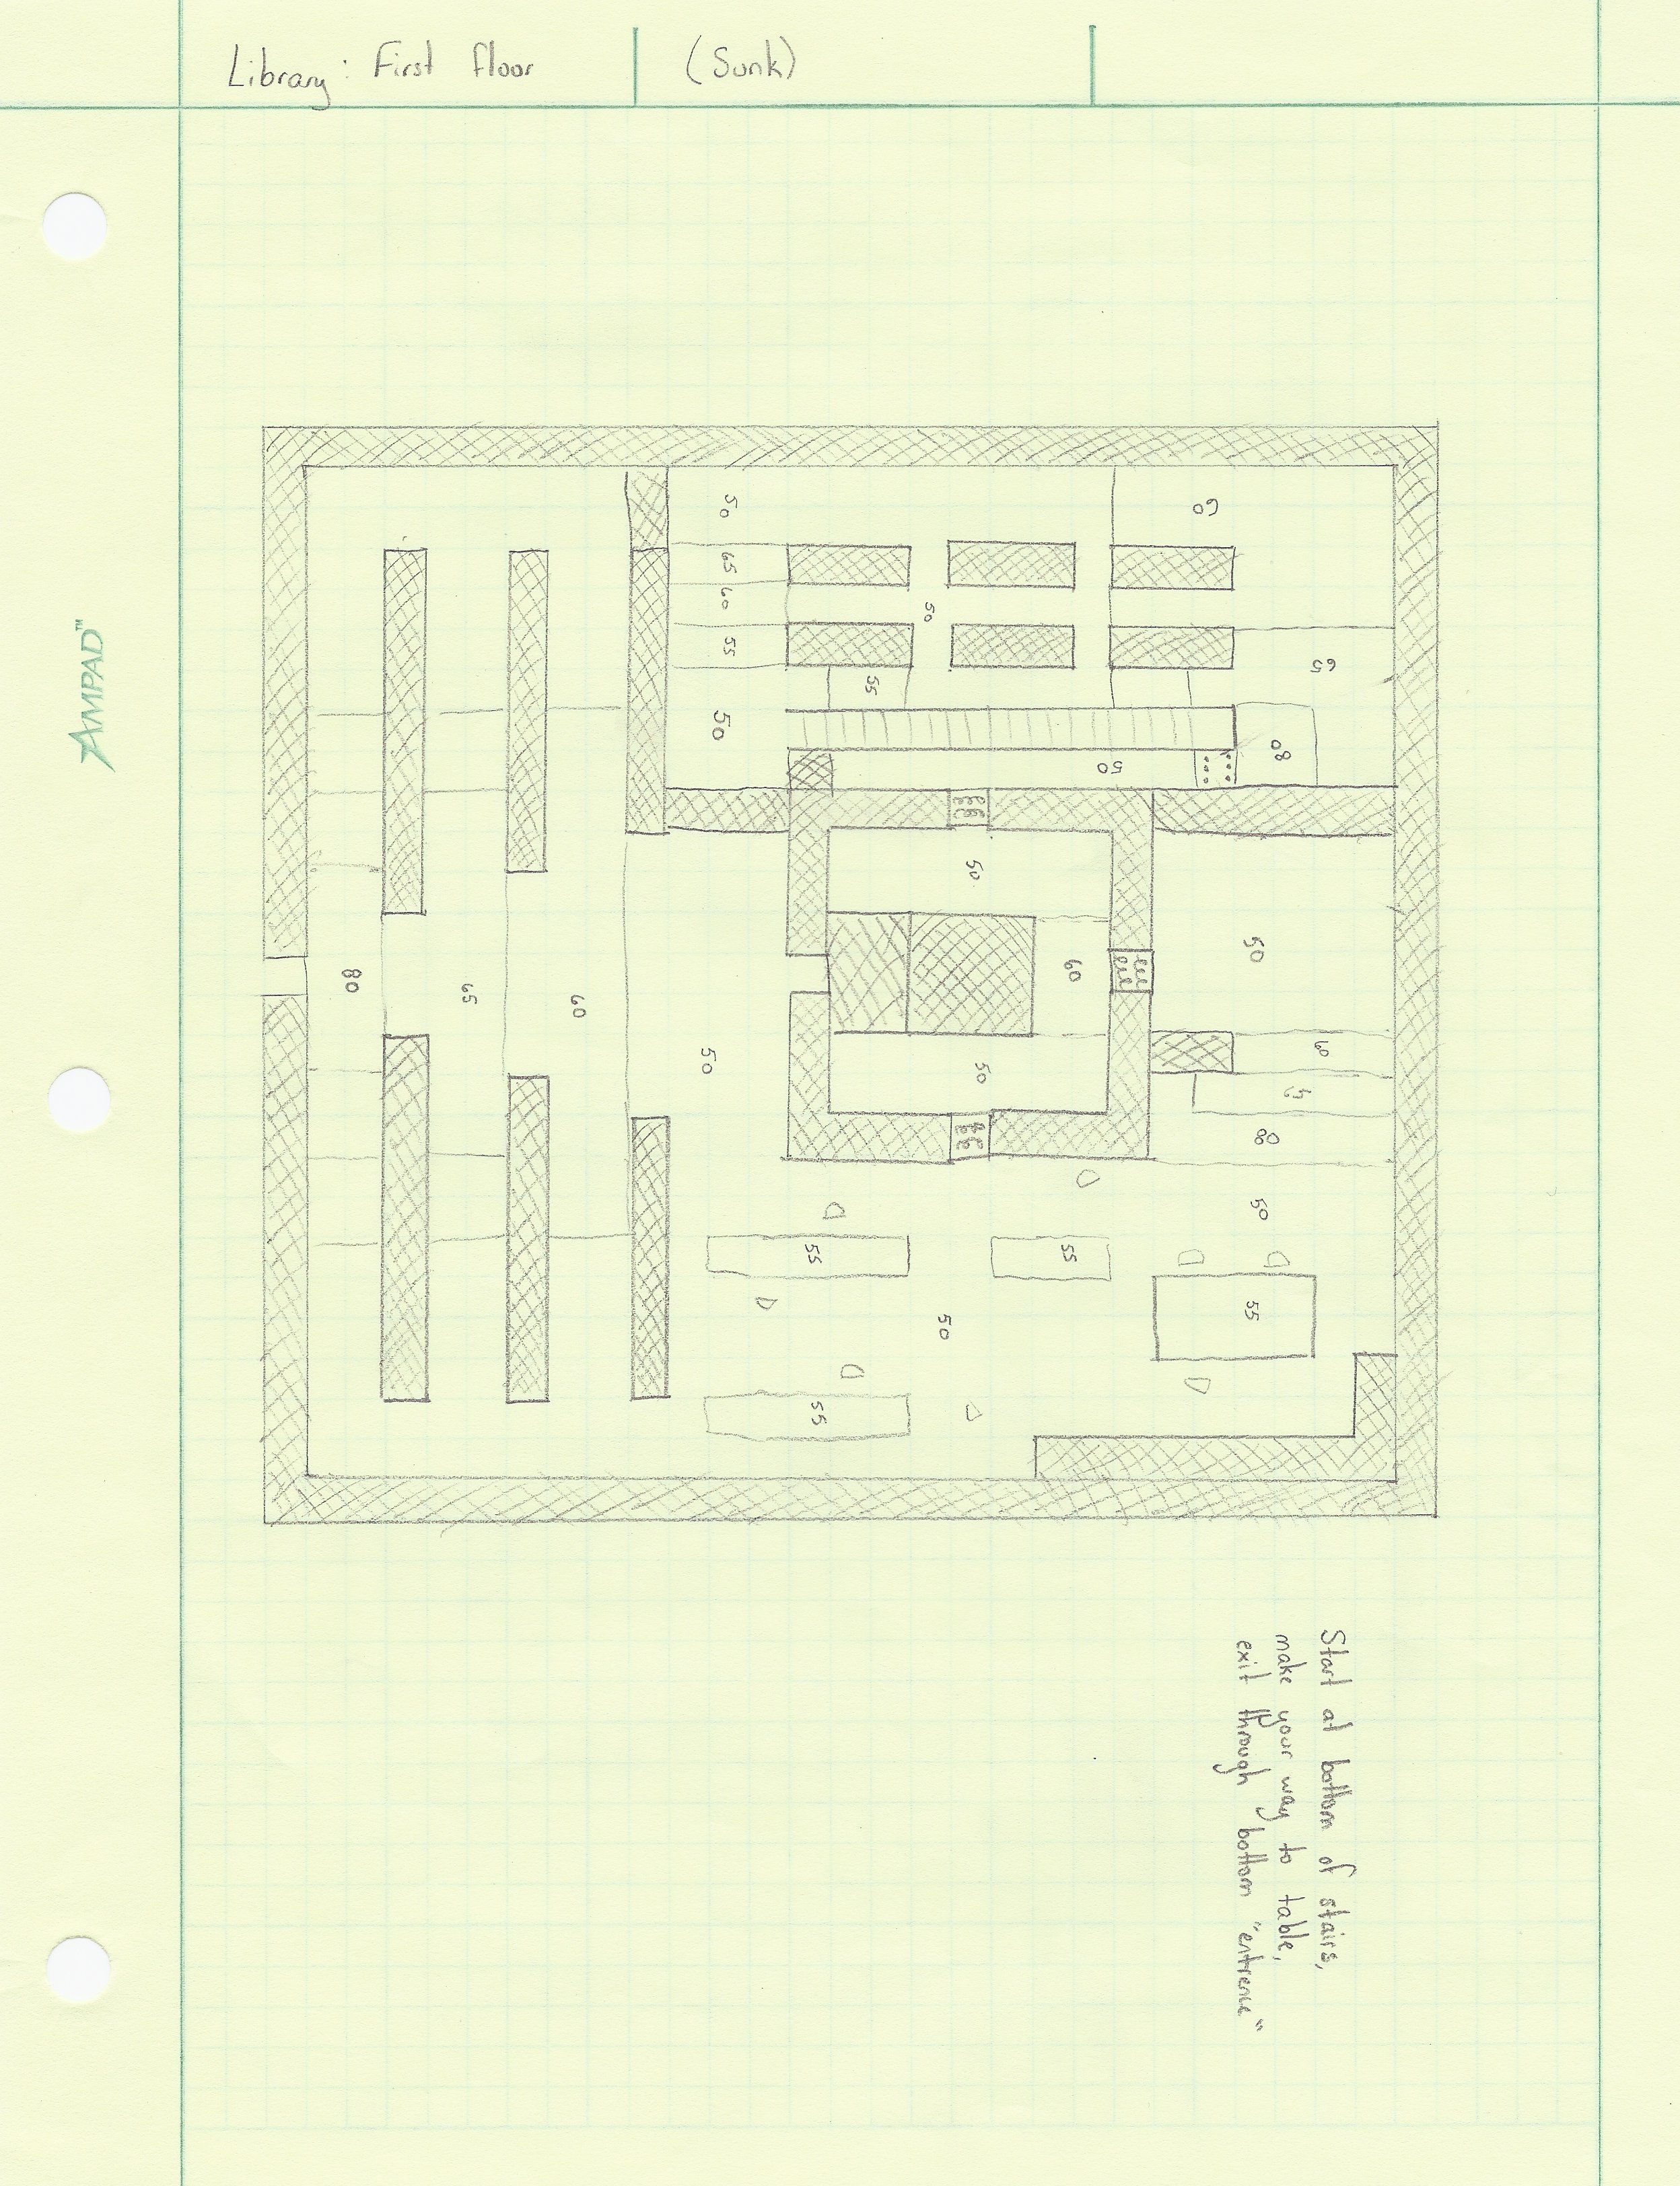 Library: First floor (Sunk)
AMPAD™
50
60
65
60
50
55
65
55
50
80
50
50
50
60
50
50
80
65
60
50
60
80
50
55
55
55
50
55
Start at bottom of stairs,
make your way to table,
exit through bottom "entrence"